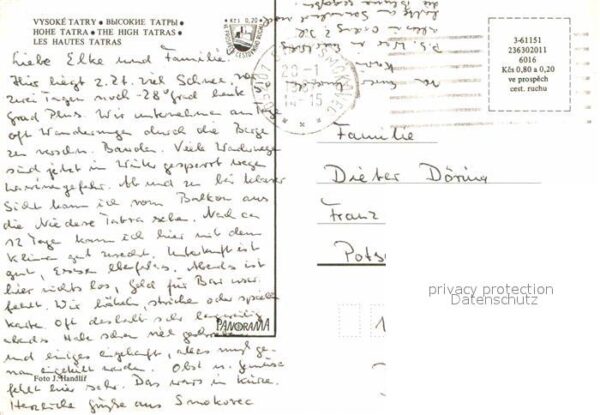 VYSOKÉ TATRY • ВЫСОКИЕ ТАТРЫ •
HOHE TATRA • THE HIGH TATRAS •
LES HAUTES TATRAS
Kčs 0,20
Liebe Elke und Familie!
Hier liegt z. Zt. viel Schnee, vor
zwei Tagen noch -28° Grad heute
Grad Plus. Wir unternehmen am Tage
oft Wanderungen durch die Berge
zu versch. Bauden. Viele Wanderwege
sind jetzt im Winter gesperrt wegen
Lawinengefahr. Ab und zu bei klarer
Sicht kann ich vom Balkon aus
die Niedere Tatra sehen. Nach ca
12 Tagen kam ich hier mit dem
Klima gut zurecht. Unterkunft ist
gut, Essen ebenfalls. Abends ist
hier nichts los, Geld für Bar usw.
fehlt. Wir häkeln, stricken oder spielen
Karte. Oft deshalb sehr langweilig
abends. Habe schon viel geschrieben
und einiges eingekauft, alles muß ge-
nau eingeteilt werden. Obst u. Gemüse
fehlt hier sehr. Das wars in Kürze.
Herzliche Grüße aus Smokovec
PANORAMA
Foto J. Handlíř
P.S.
29.-1
-15
3-61151
236302011
6016
Kčs 0,80 a 0,20
ve prospěch
cest. ruchu
Familie
Dieter Döring
Franz
Pots
privacy protection
Datenschutz
1